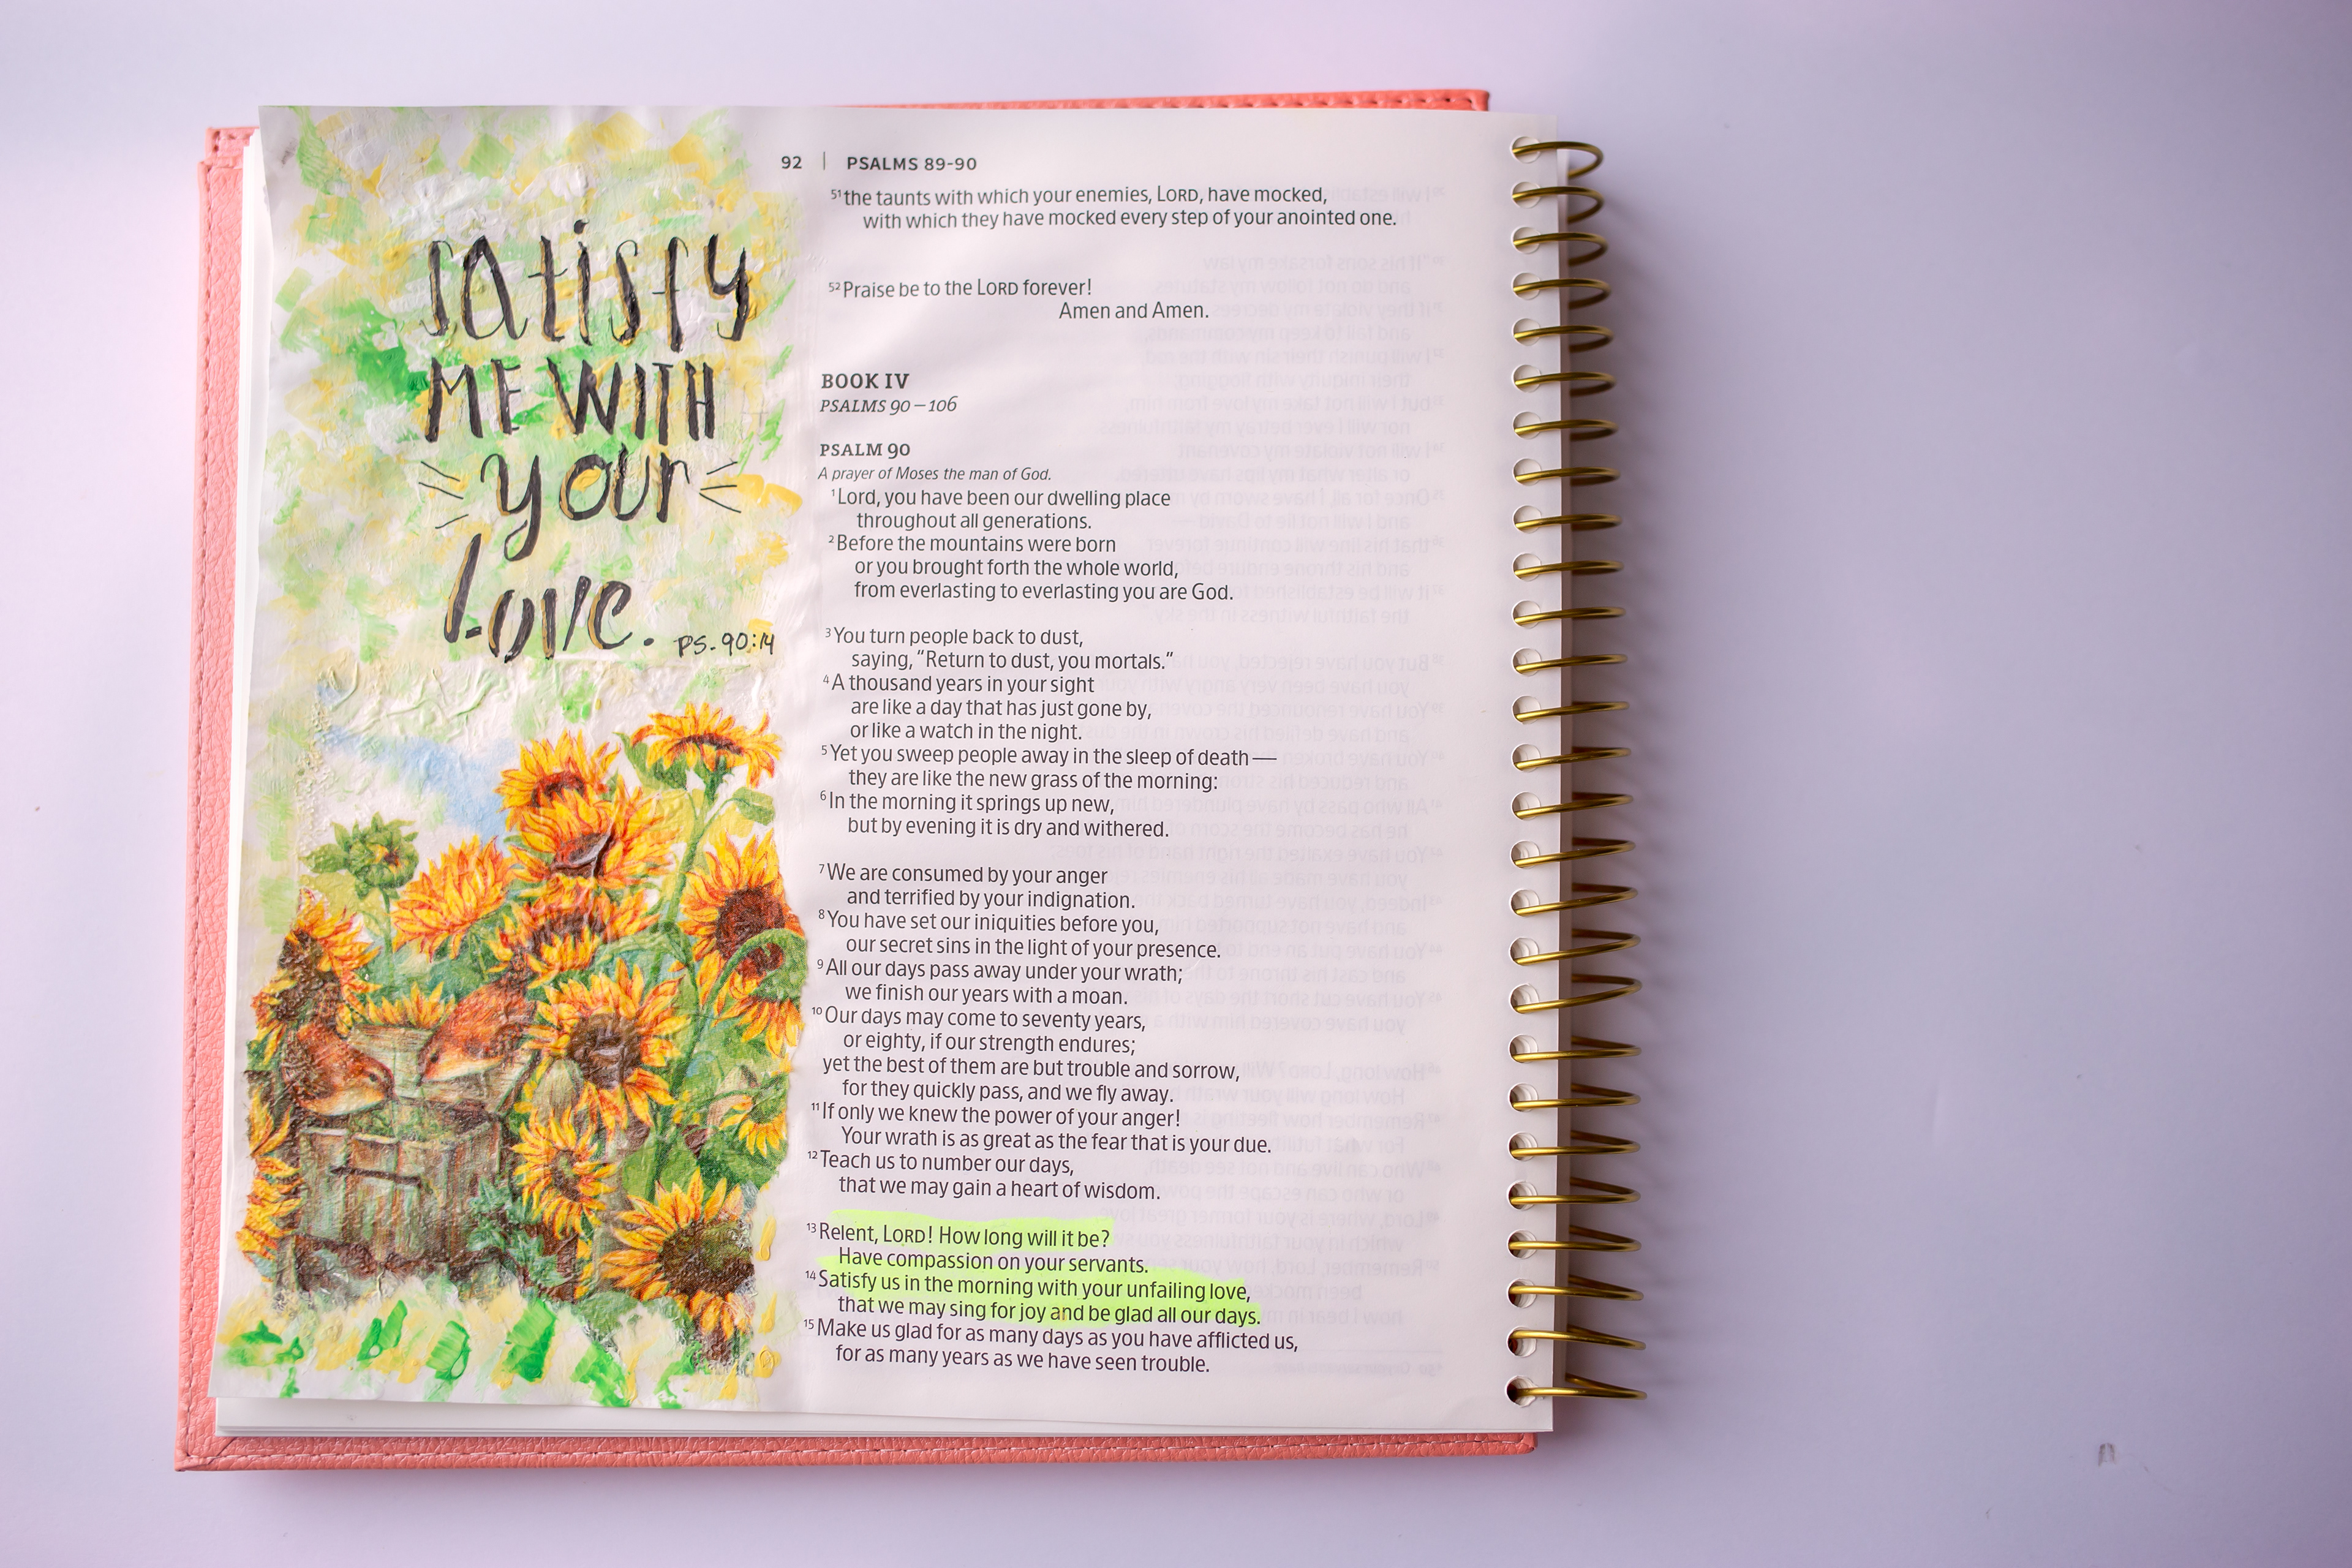 satisfy
ME WITH
your
Love.
PS. 90:14
92 | PSALMS 89-90
51 the taunts with which your enemies, LORD, have mocked,
with which they have mocked every step of your anointed one.
52 Praise be to the LORD forever!
Amen and Amen.
BOOK IV
PSALMS 90–106
PSALM 90
A prayer of Moses the man of God.
1 Lord, you have been our dwelling place
throughout all generations.
2 Before the mountains were born
or you brought forth the whole world,
from everlasting to everlasting you are God.
3 You turn people back to dust,
saying, “Return to dust, you mortals.”
4 A thousand years in your sight
are like a day that has just gone by,
or like a watch in the night.
5 Yet you sweep people away in the sleep of death—
they are like the new grass of the morning:
6 In the morning it springs up new,
but by evening it is dry and withered.
7 We are consumed by your anger
and terrified by your indignation.
8 You have set our iniquities before you,
our secret sins in the light of your presence.
9 All our days pass away under your wrath;
we finish our years with a moan.
10 Our days may come to seventy years,
or eighty, if our strength endures;
yet the best of them are but trouble and sorrow,
for they quickly pass, and we fly away.
11 If only we knew the power of your anger!
Your wrath is as great as the fear that is your due.
12 Teach us to number our days,
that we may gain a heart of wisdom.
13 Relent, LORD! How long will it be?
Have compassion on your servants.
14 Satisfy us in the morning with your unfailing love,
that we may sing for joy and be glad all our days.
15 Make us glad for as many days as you have afflicted us,
for as many years as we have seen trouble.